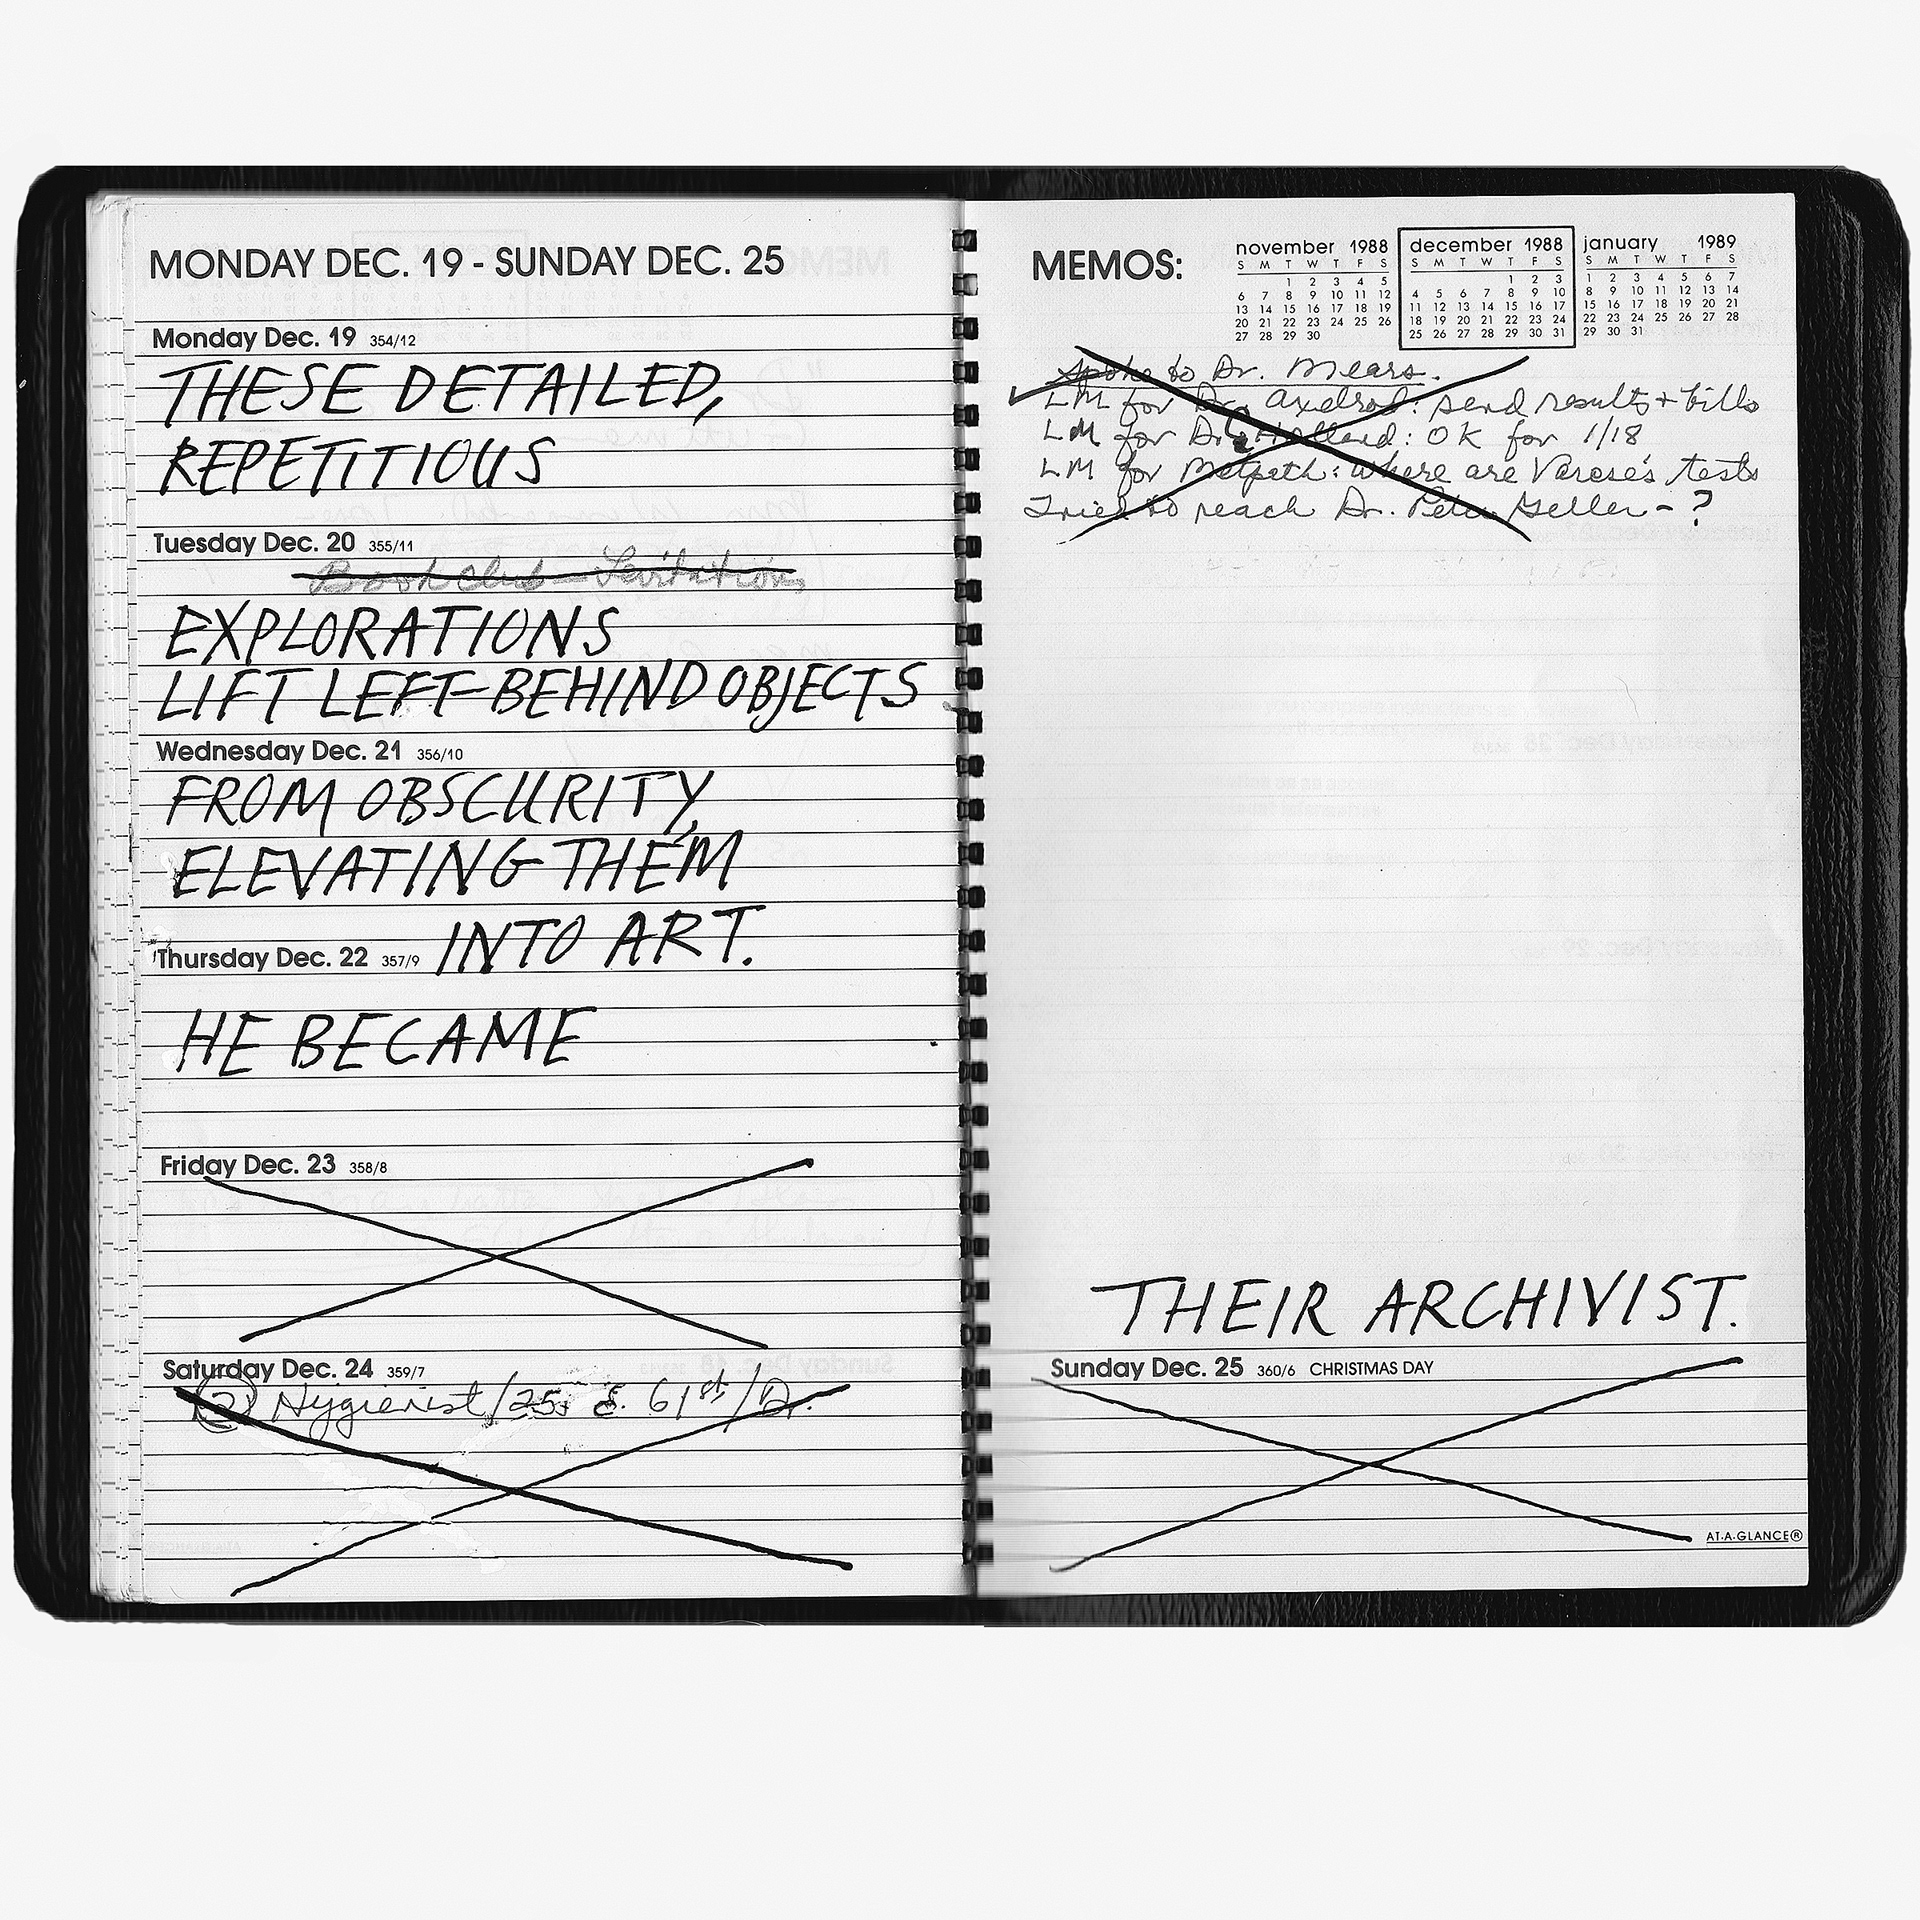 MONDAY DEC. 19 - SUNDAY DEC. 25
Monday Dec. 19 354/12
THESE DETAILED,
REPETITIOUS
Tuesday Dec. 20 355/11
Book club - Levitations
EXPLORATIONS
LIFT LEFT-BEHIND OBJECTS
Wednesday Dec. 21 356/10
FROM OBSCURITY,
ELEVATING THEM
INTO ART.
Thursday Dec. 22 357/9
HE BECAME
Friday Dec. 23 358/8
Saturday Dec. 24 359/7
2 Hygienist/25 E. 61st/Dr.
MEMOS:
november 1988
S M T W T F S
1 2 3 4 5
6 7 8 9 10 11 12
13 14 15 16 17 18 19
20 21 22 23 24 25 26
27 28 29 30
december 1988
S M T W T F S
1 2 3
4 5 6 7 8 9 10
11 12 13 14 15 16 17
18 19 20 21 22 23 24
25 26 27 28 29 30 31
january 1989
S M T W T F S
1 2 3 4 5 6 7
8 9 10 11 12 13 14
15 16 17 18 19 20 21
22 23 24 25 26 27 28
29 30 31
Spoke to Dr. Mears.
LM for Dr. Axelrod: send results + bills
LM for Dr. Holland: OK for 1/18
LM for Metpath: where are Varese's tests
Tried to reach Dr. Peter Geller - ?
THEIR ARCHIVIST.
Sunday Dec. 25 360/6 CHRISTMAS DAY
AT-A-GLANCE®